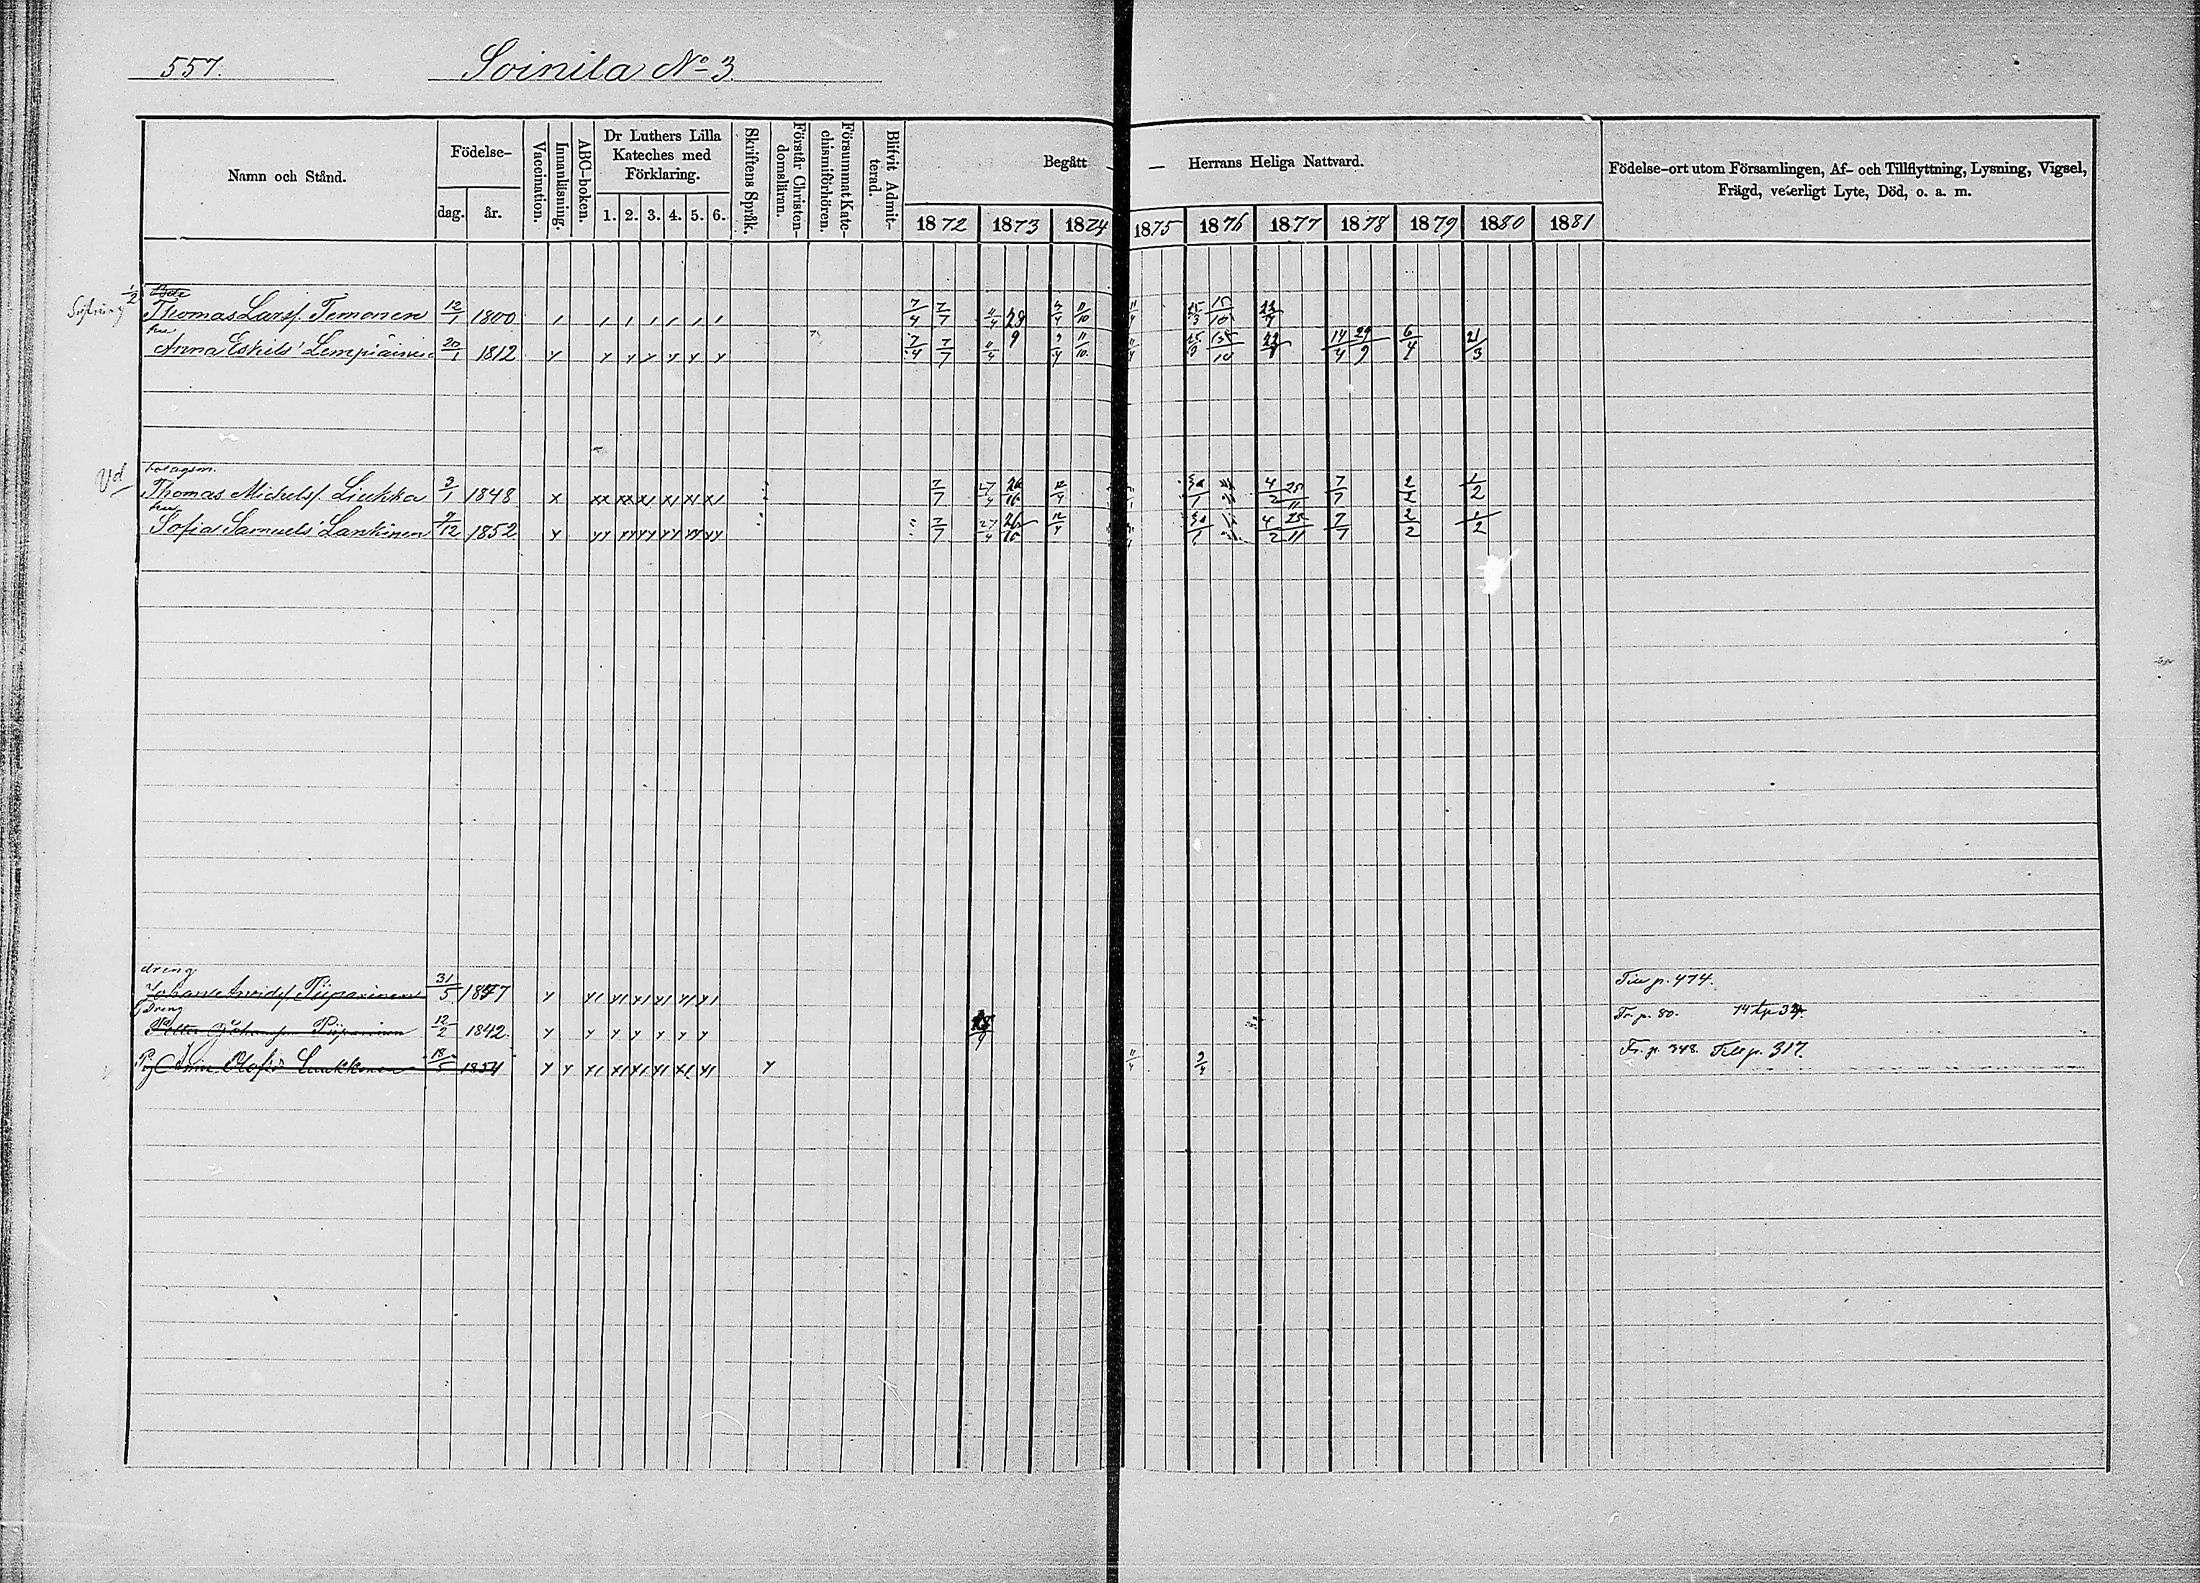 557.
Soinila No 3.
Namn och Stånd.
Födelse-
dag.
år.
Vaccination.
Innanläsning.
ABC-boken.
Dr Luthers Lilla
Kateches med
Förklaring.
1. 2. 3. 4. 5. 6.
Skriftens Språk.
Förstår Christen-
domsläran.
Försummat Kate-
chismiförhören.
Blifvit Admit-
terad.
Begått — Herrans Heliga Nattvard.
1872 1873 1874 1875 1876 1877 1878 1879 1880 1881
Födelse-ort utom Församlingen, Af- och Tillflyttning, Lysning, Vigsel,
Frägd, veterligt Lyte, Död, o. a. m.
1/2
Thomas Larsf. Temonen 12/1 1800 7/4 7/7 11/4 28/9 11/10 25/3 15/10
hu
Anna Eskils' Lempiäinen 20/1 1812 7/4 7/7 11/4 11/10 11/4 25/3 15/10 14/4 29/9 6/4 21/3
Vd
bolagsm.
Thomas Michelsf. Liukka 3/1 1848 7/7 27/4 26/10 12/4 4/2 25/11 7/7 2/2 1/2
hu
Sofia Samuels' Lankinen 7/12 1852 7/7 27/4 26/10 12/4 30/1 4/2 25/11 7/7 2/2 1/2
dreng
Johan Arvidsf Piiparinen 31/5 1847 Till p. 474.
Dreng
Petter Johansson Piiparinen 12/2 1842. Fr. p. 80. 74 tp 34.
Pig Anna Olofs' Luukkonen 18/5 1854 11/4 9/4 Fr. p. 348. Till p. 317.